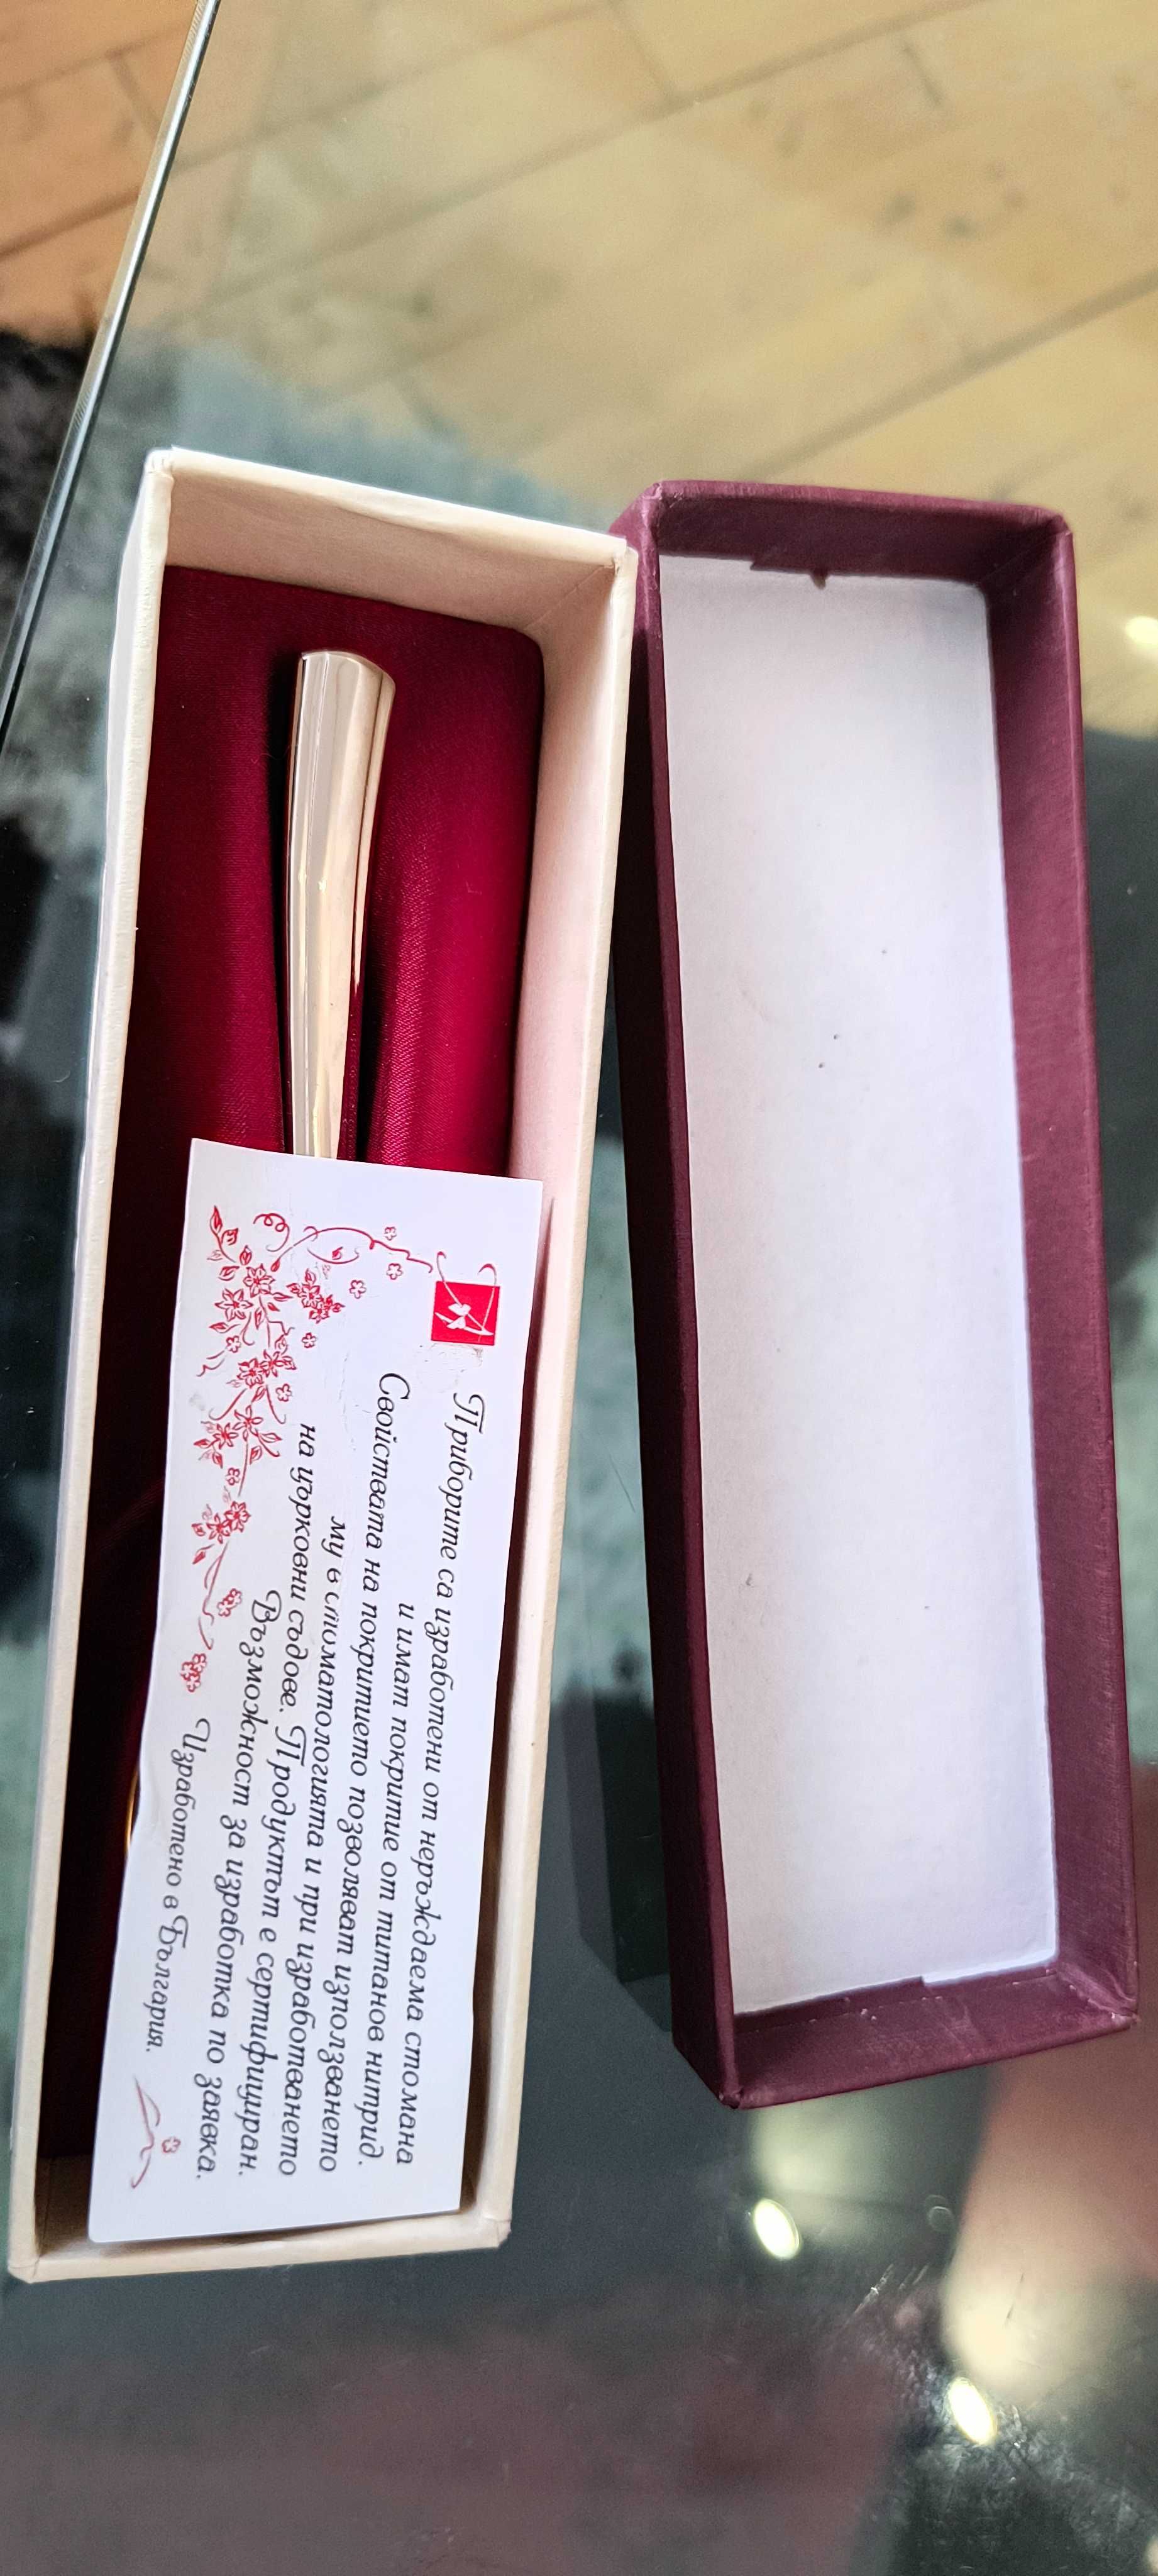 Приборите са изработени от неръждаема стомана
и имат покритие от титанов нитрид.
Свойствата на покритието позволяват използването
му в стоматологията и при изработването
на църковни съдове. Продуктът е сертифициран.
Възможност за изработка по заявка.
Изработено в България.